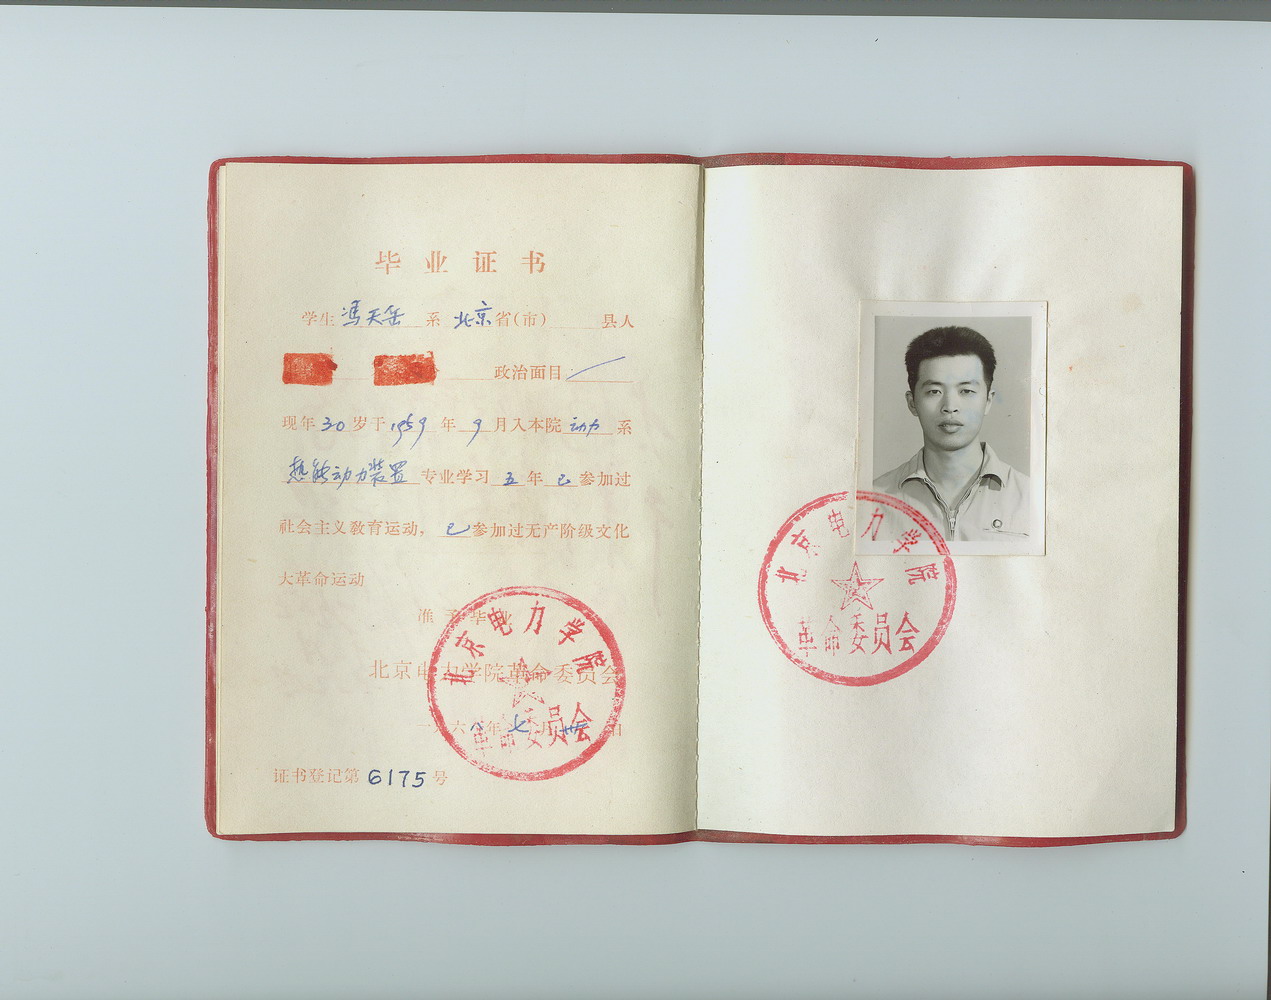 毕业证书
学生 冯天岳 系 北京 省(市) 县人
政治面目
现年 30 岁于 1959 年 9 月入本院 动力 系
热能动力装置 专业学习 五 年 已 参加过
社会主义教育运动， 已 参加过无产阶级文化
大革命运动
准予毕业
北京电力学院革命委员会
六 八 年 七 月 日
证书登记第 6175 号
北京电力学院
革命委员会
北京电力学院
革命委员会